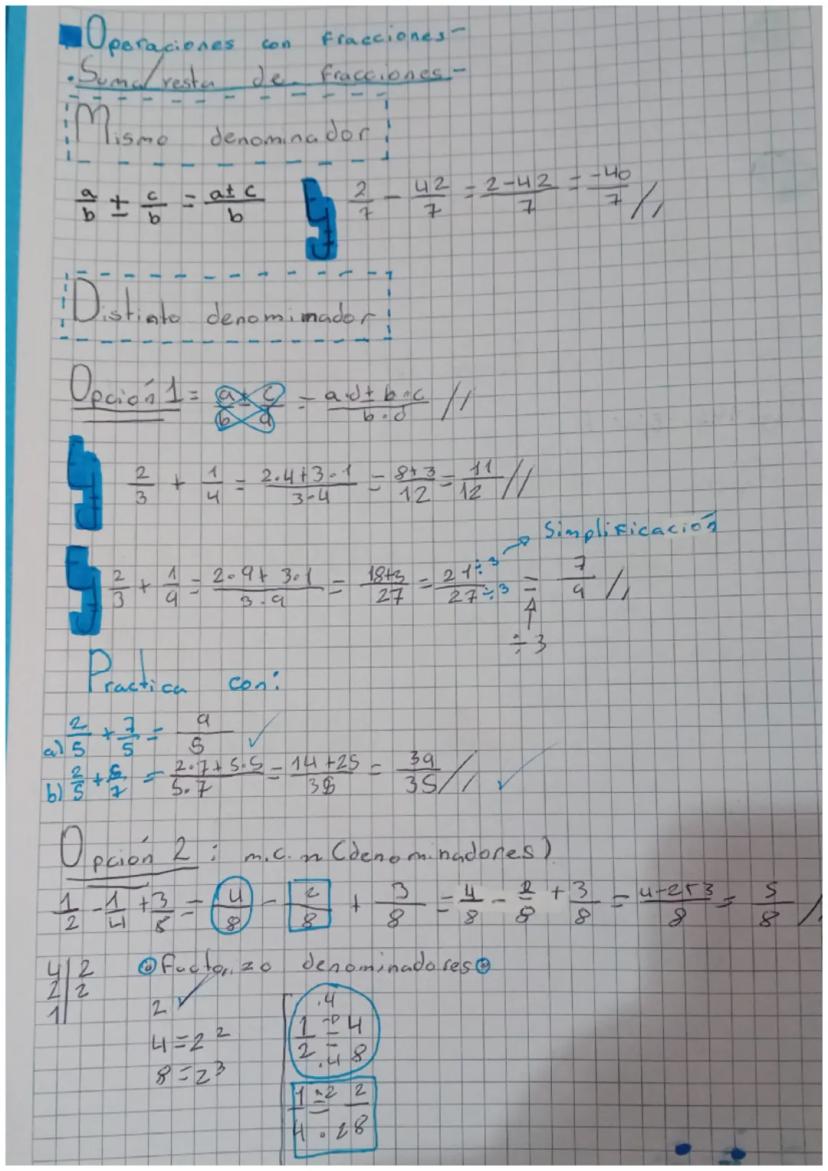 Operaciones con fracciones-
• Suma/resta de fracciones-
Mismo denominador
a/b ± c/b = a±c/b Ej 2/7 - 42/7 = 2-42/7 = -40/7 //
Distinto denomimador
Opción 1 = a/b ± c/d = a·d ± b·c/b·d //
Ej 2/3 + 1/4 = 2·4+3·1/3·4 = 8+3/12 = 11/12 //
Simplificación
Ej 2/3 + 1/9 = 2·9+3·1/3·9 = 18+3/27 = 21÷3/27÷3 = 7/9 //
÷3
Practica con:
a) 2/5 + 7/5 = 9/5 ✓
b) 2/5 + 5/7 = 2·7+5·5/5·7 = 14+25/35 = 39/35 // ✓
Opción 2: m.c.m (denominadores)
1/2 - 1/4 + 3/8 = 4/8 - 2/8 + 3/8 = 4/8 - 2/8 + 3/8 = 4-2+3/8 = 5/8 //
4|2 Factorizo denominadores
2|2
1|
2 ✓
4=2²
8=2³
·4
1/2 = 4/8
·4
1/4 ·2 = 2/8
·2